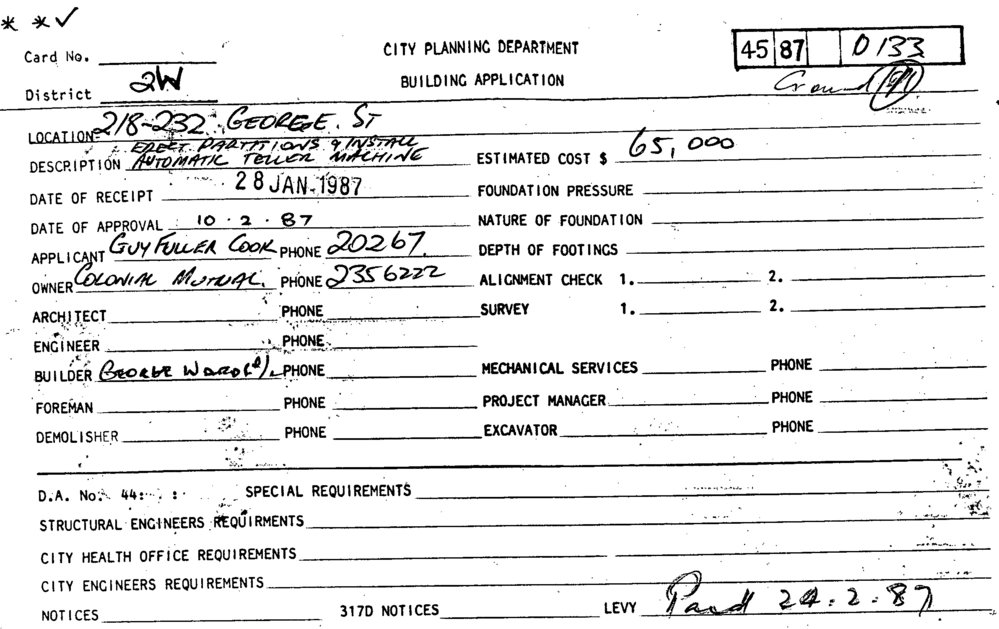 * * ✓
Card No.
CITY PLANNING DEPARTMENT
45 87 D 133
District 2W
BUILDING APPLICATION
Ground
LOCATION 218-232 GEORGE ST
DESCRIPTION ERECT PARTITIONS & INSTALL
AUTOMATIC TELLER MACHINE
ESTIMATED COST $ 65,000
DATE OF RECEIPT 28 JAN 1987
FOUNDATION PRESSURE
DATE OF APPROVAL 10 · 2 · 87
NATURE OF FOUNDATION
APPLICANT GUY FULLER COOK PHONE 20267.
DEPTH OF FOOTINGS
OWNER COLONIAL MUTUAL. PHONE 2356222
ALIGNMENT CHECK 1. 2.
ARCHITECT PHONE
SURVEY 1. 2.
ENGINEER PHONE
BUILDER GEORGE WARD PHONE
MECHANICAL SERVICES PHONE
FOREMAN PHONE
PROJECT MANAGER PHONE
DEMOLISHER PHONE
EXCAVATOR PHONE
D.A. No. 44: : SPECIAL REQUIREMENTS
STRUCTURAL ENGINEERS REQUIRMENTS
CITY HEALTH OFFICE REQUIREMENTS
CITY ENGINEERS REQUIREMENTS
NOTICES 317D NOTICES LEVY Paid 24.2.87